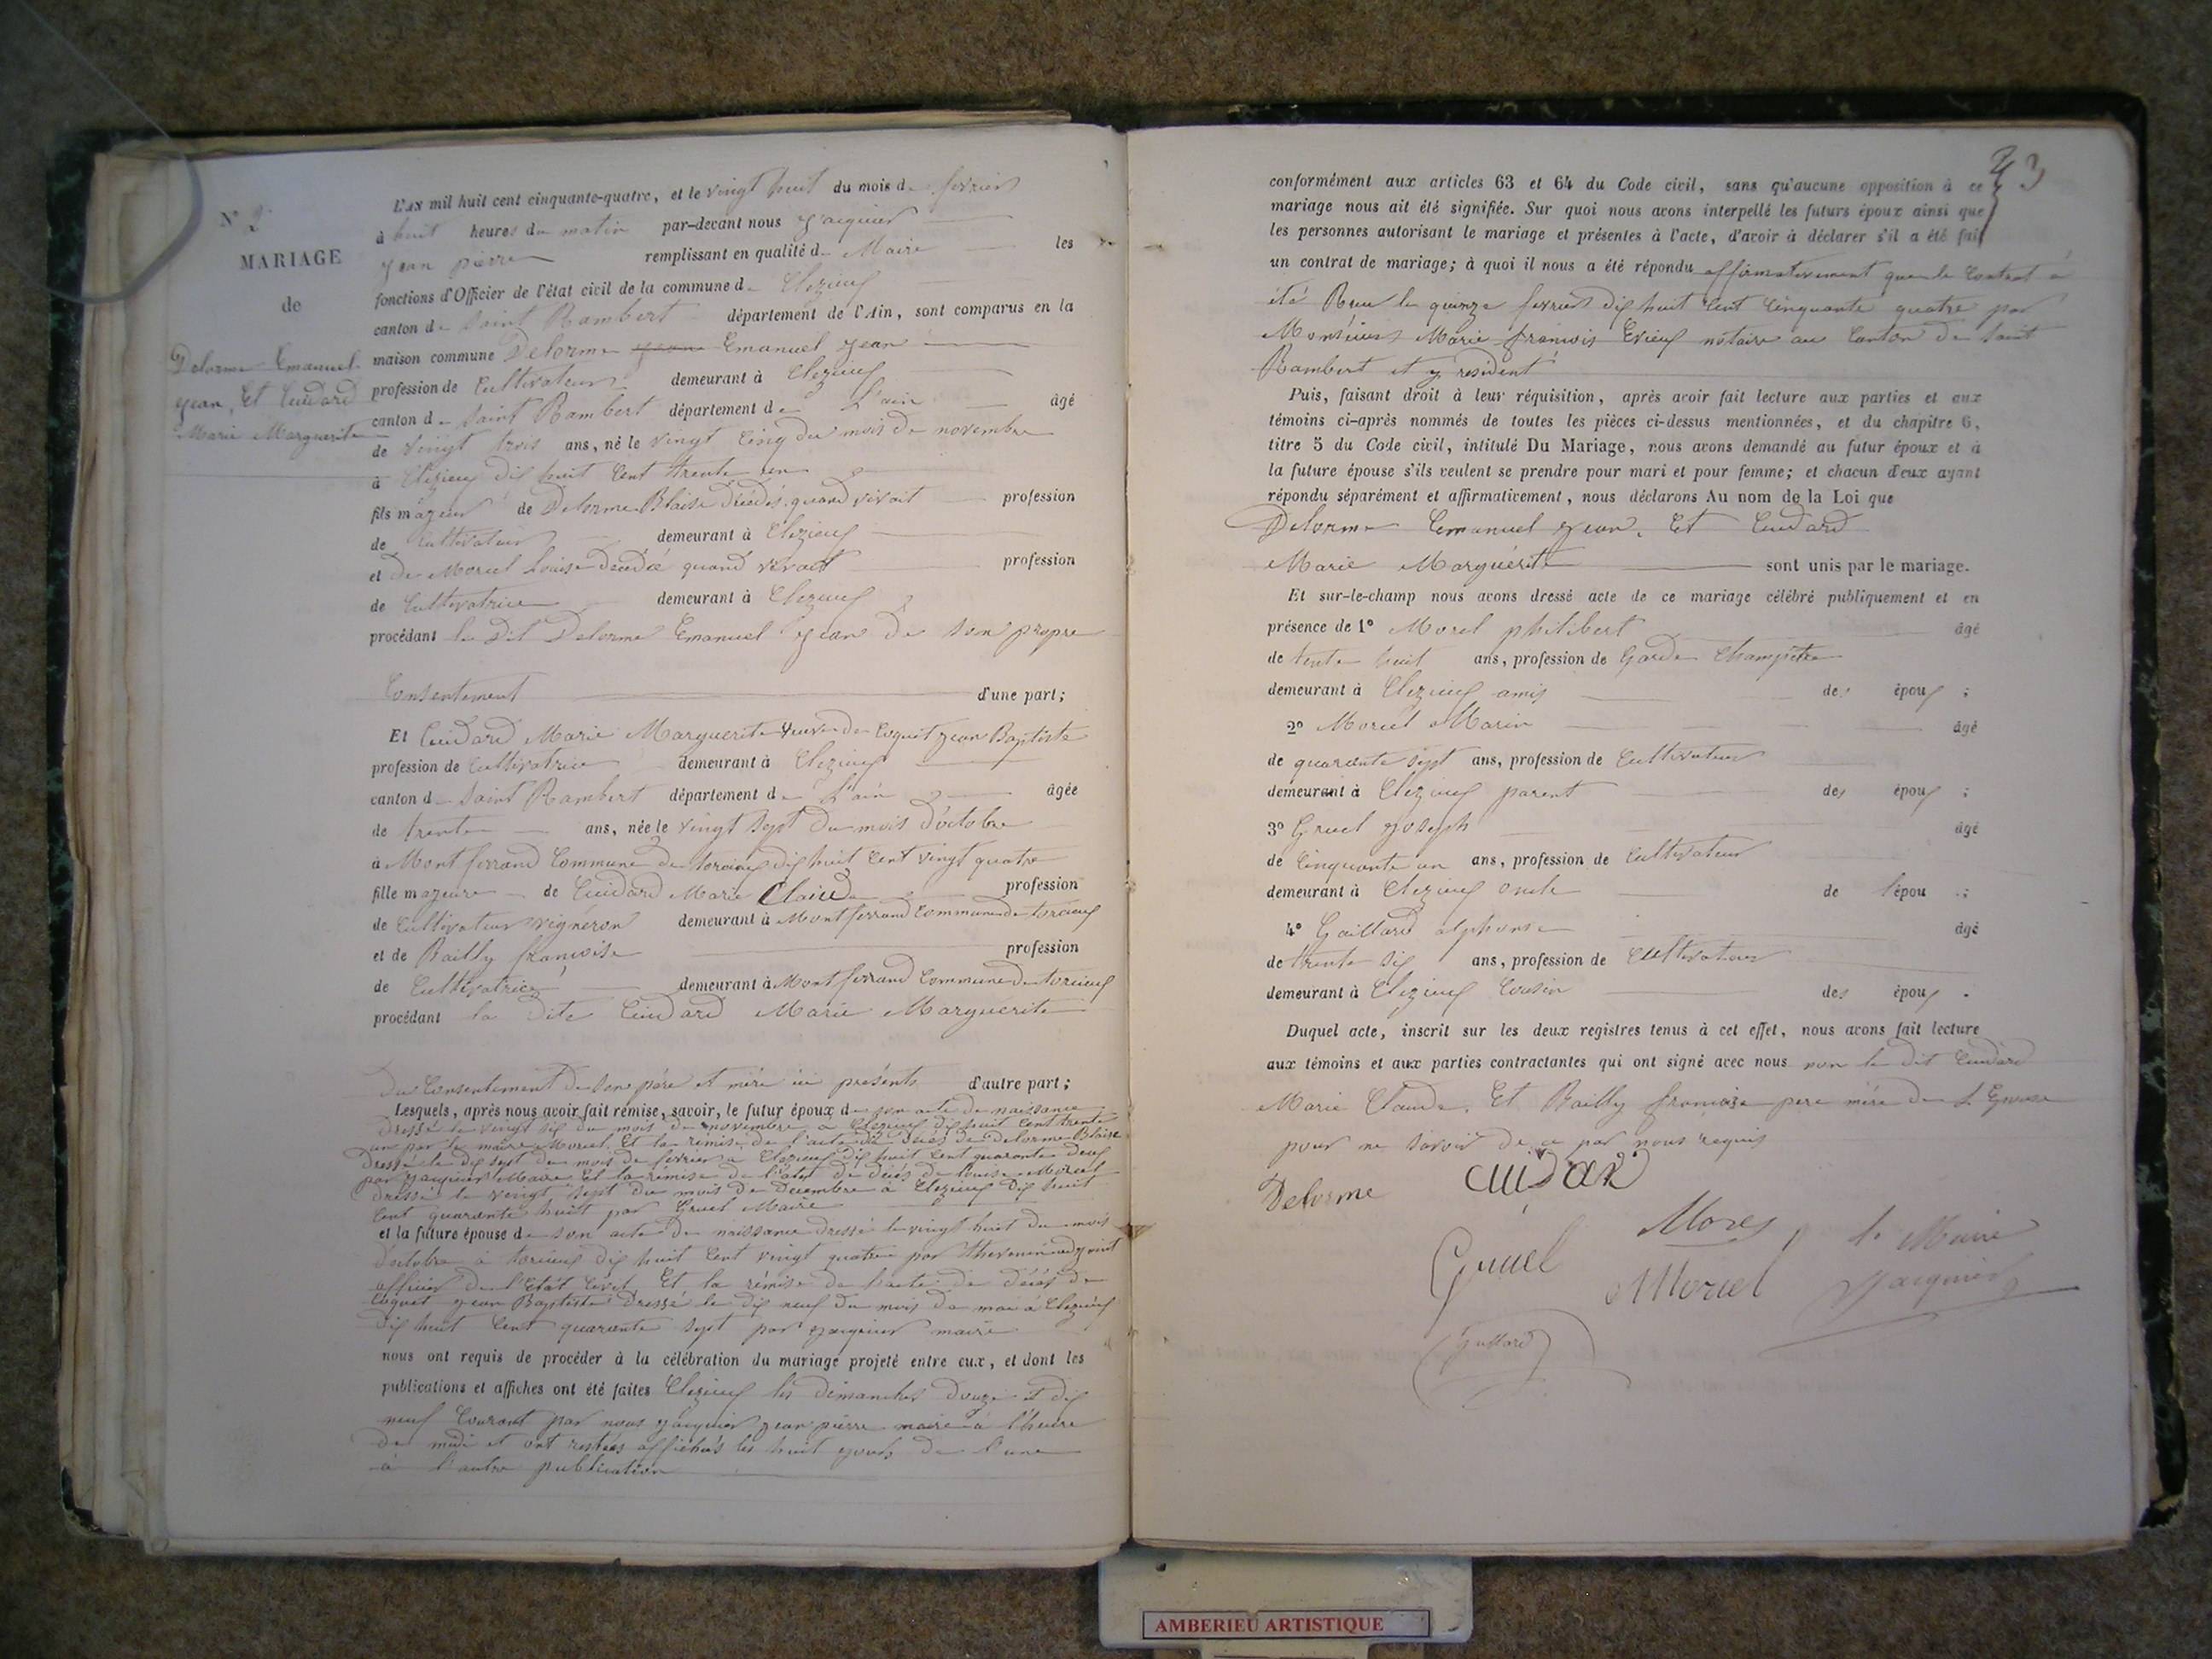 N° 2
MARIAGE
de
Delorme Emanuel
yean, Et Cuidard
Marie Marguerite
L'AN mil huit cent cinquante-quatre, et le vingt huit du mois de fevrier
à huit heures du matin par-devant nous yaiquier
yean pierre remplissant en qualité de Maire les
fonctions d'Officier de l'état civil de la commune de Clezieu
canton de Saint Rambert département de l'Ain, sont comparus en la
maison commune Delorme yean Emanuel yean
profession de Cultivateur demeurant à Clezieu
canton de Saint Rambert département de L'ain âgé
de vingt trois ans, né le vingt cinq du mois de novembre
à Clezieu dix huit Cent trente un
fils majeur de Delorme Blaise décédés quand vivait profession
de Cultivateur demeurant à Clezieu
et de Moriel Louise décédé quand vivait profession
de Cultivatrice demeurant à Clezieu
procédant le Dit Delorme Emanuel yean De Son propre
Consentement d'une part;
Et Cuidard Marie Marguerite veuve de Coquet yean Baptiste
profession de Cultivatrice demeurant à Clezieu
canton de Saint Rambert département de L'ain âgée
de trente ans, née le vingt sept du mois d'octobre
à Mont ferrand Commune de torcieu dix huit Cent vingt quatre
fille majeure de Cuidard Marie Claude profession
de Cultivateur vigneron demeurant à Mont ferrand Commune de torcieu
et de Bailly françoise profession
de Cultivatrice demeurant à Mont ferrand Commune de torcieu
procédant la Dite Cuidard Marie Marguerite
Du Consentement de son père et mère ici présents d'autre part;
Lesquels, après nous avoir fait remise, savoir, le futur époux de son acte de naissance
Dressé le vingt six du mois de novembre a Clezieu dix huit Cent trente
un par le maire Moriel Et la remise de l'acte de décés de Delorme Blaise
Dressé le dix sept du mois de fevrier a Clezieu dix huit Cent quarante deux
par yaiquier Maire Et la rémise de l'acte de décés de Louise Moriel
Dressé le vingt sept du mois de Decembre à Clezieu dix huit
Cent quarante huit par Gruel Maire
et la future épouse de son acte de naissance dressé le vingt huit du mois
d'octobre à torcieu dix huit Cent vingt quatre par thevenin adjoint
officier de l'Etat Civil Et la rémise de l'acte de décés de
Coquet yean Baptiste Dressé le dix neuf du mois de mai à Clezieu
dix huit Cent quarante sept par yaiquier maire
nous ont requis de procéder à la célébration du mariage projeté entre eux, et dont les
publications et affiches ont été faites Clezieu les dimanches douze et dix
neuf Courant par nous yaiquier yean pierre maire à l'heure
de midi et ont restées affichés les huit yours de l'une
à l'autre publication
23
conformément aux articles 63 et 64 du Code civil, sans qu'aucune opposition à ce
mariage nous ait été signifiée. Sur quoi nous avons interpellé les futurs époux ainsi que
les personnes autorisant le mariage et présentes à l'acte, d'avoir à déclarer s'il a été fait
un contrat de mariage; à quoi il nous a été répondu affirmativement que le Contrat à
été Reçu le quinze fevrier dix huit Cent Cinquante quatre par
Monsieur Marie françois notaire au Canton de Saint
Rambert et y resident
Puis, faisant droit à leur réquisition, après avoir fait lecture aux parties et aux
témoins ci-après nommés de toutes les pièces ci-dessus mentionnées, et du chapitre 6,
titre 5 du Code civil, intitulé Du Mariage, nous avons demandé au futur époux et à
la future épouse s'ils veulent se prendre pour mari et pour femme; et chacun d'eux ayant
répondu séparément et affirmativement, nous déclarons Au nom de la Loi que
Delorme Emanuel yean. Et Cuidard
Marie Marguérite sont unis par le mariage.
Et sur-le-champ nous avons dressé acte de ce mariage célébré publiquement et en
présence de 1° Morel philibert âgé
de trente huit ans, profession de Garde Champètre
demeurant à Clezieu amis des époux ;
2° Moriel Marin âgé
de quarante sept ans, profession de Cultivateur
demeurant à Clezieu parent des époux ;
3° Gruel yoseph âgé
de Cinquante un ans, profession de Cultivateur
demeurant à Clezieu oncle de l'épou ;
4° Gaillard alphonse âgé
de trente six ans, profession de Cultivateur
demeurant à Clezieu Cousin des époux .
Duquel acte, inscrit sur les deux registres tenus à cet effet, nous avons fait lecture
aux témoins et aux parties contractantes qui ont signé avec nous non le dit Cuidard
Marie Claude. Et Bailly françoise pere mère de L'Epouse
pour ne savoir de ce par nous requis
Delorme Cuidard
Gruel Morel le Maire
Moriel yaiquier
Gaillard
AMBERIEU ARTISTIQUE